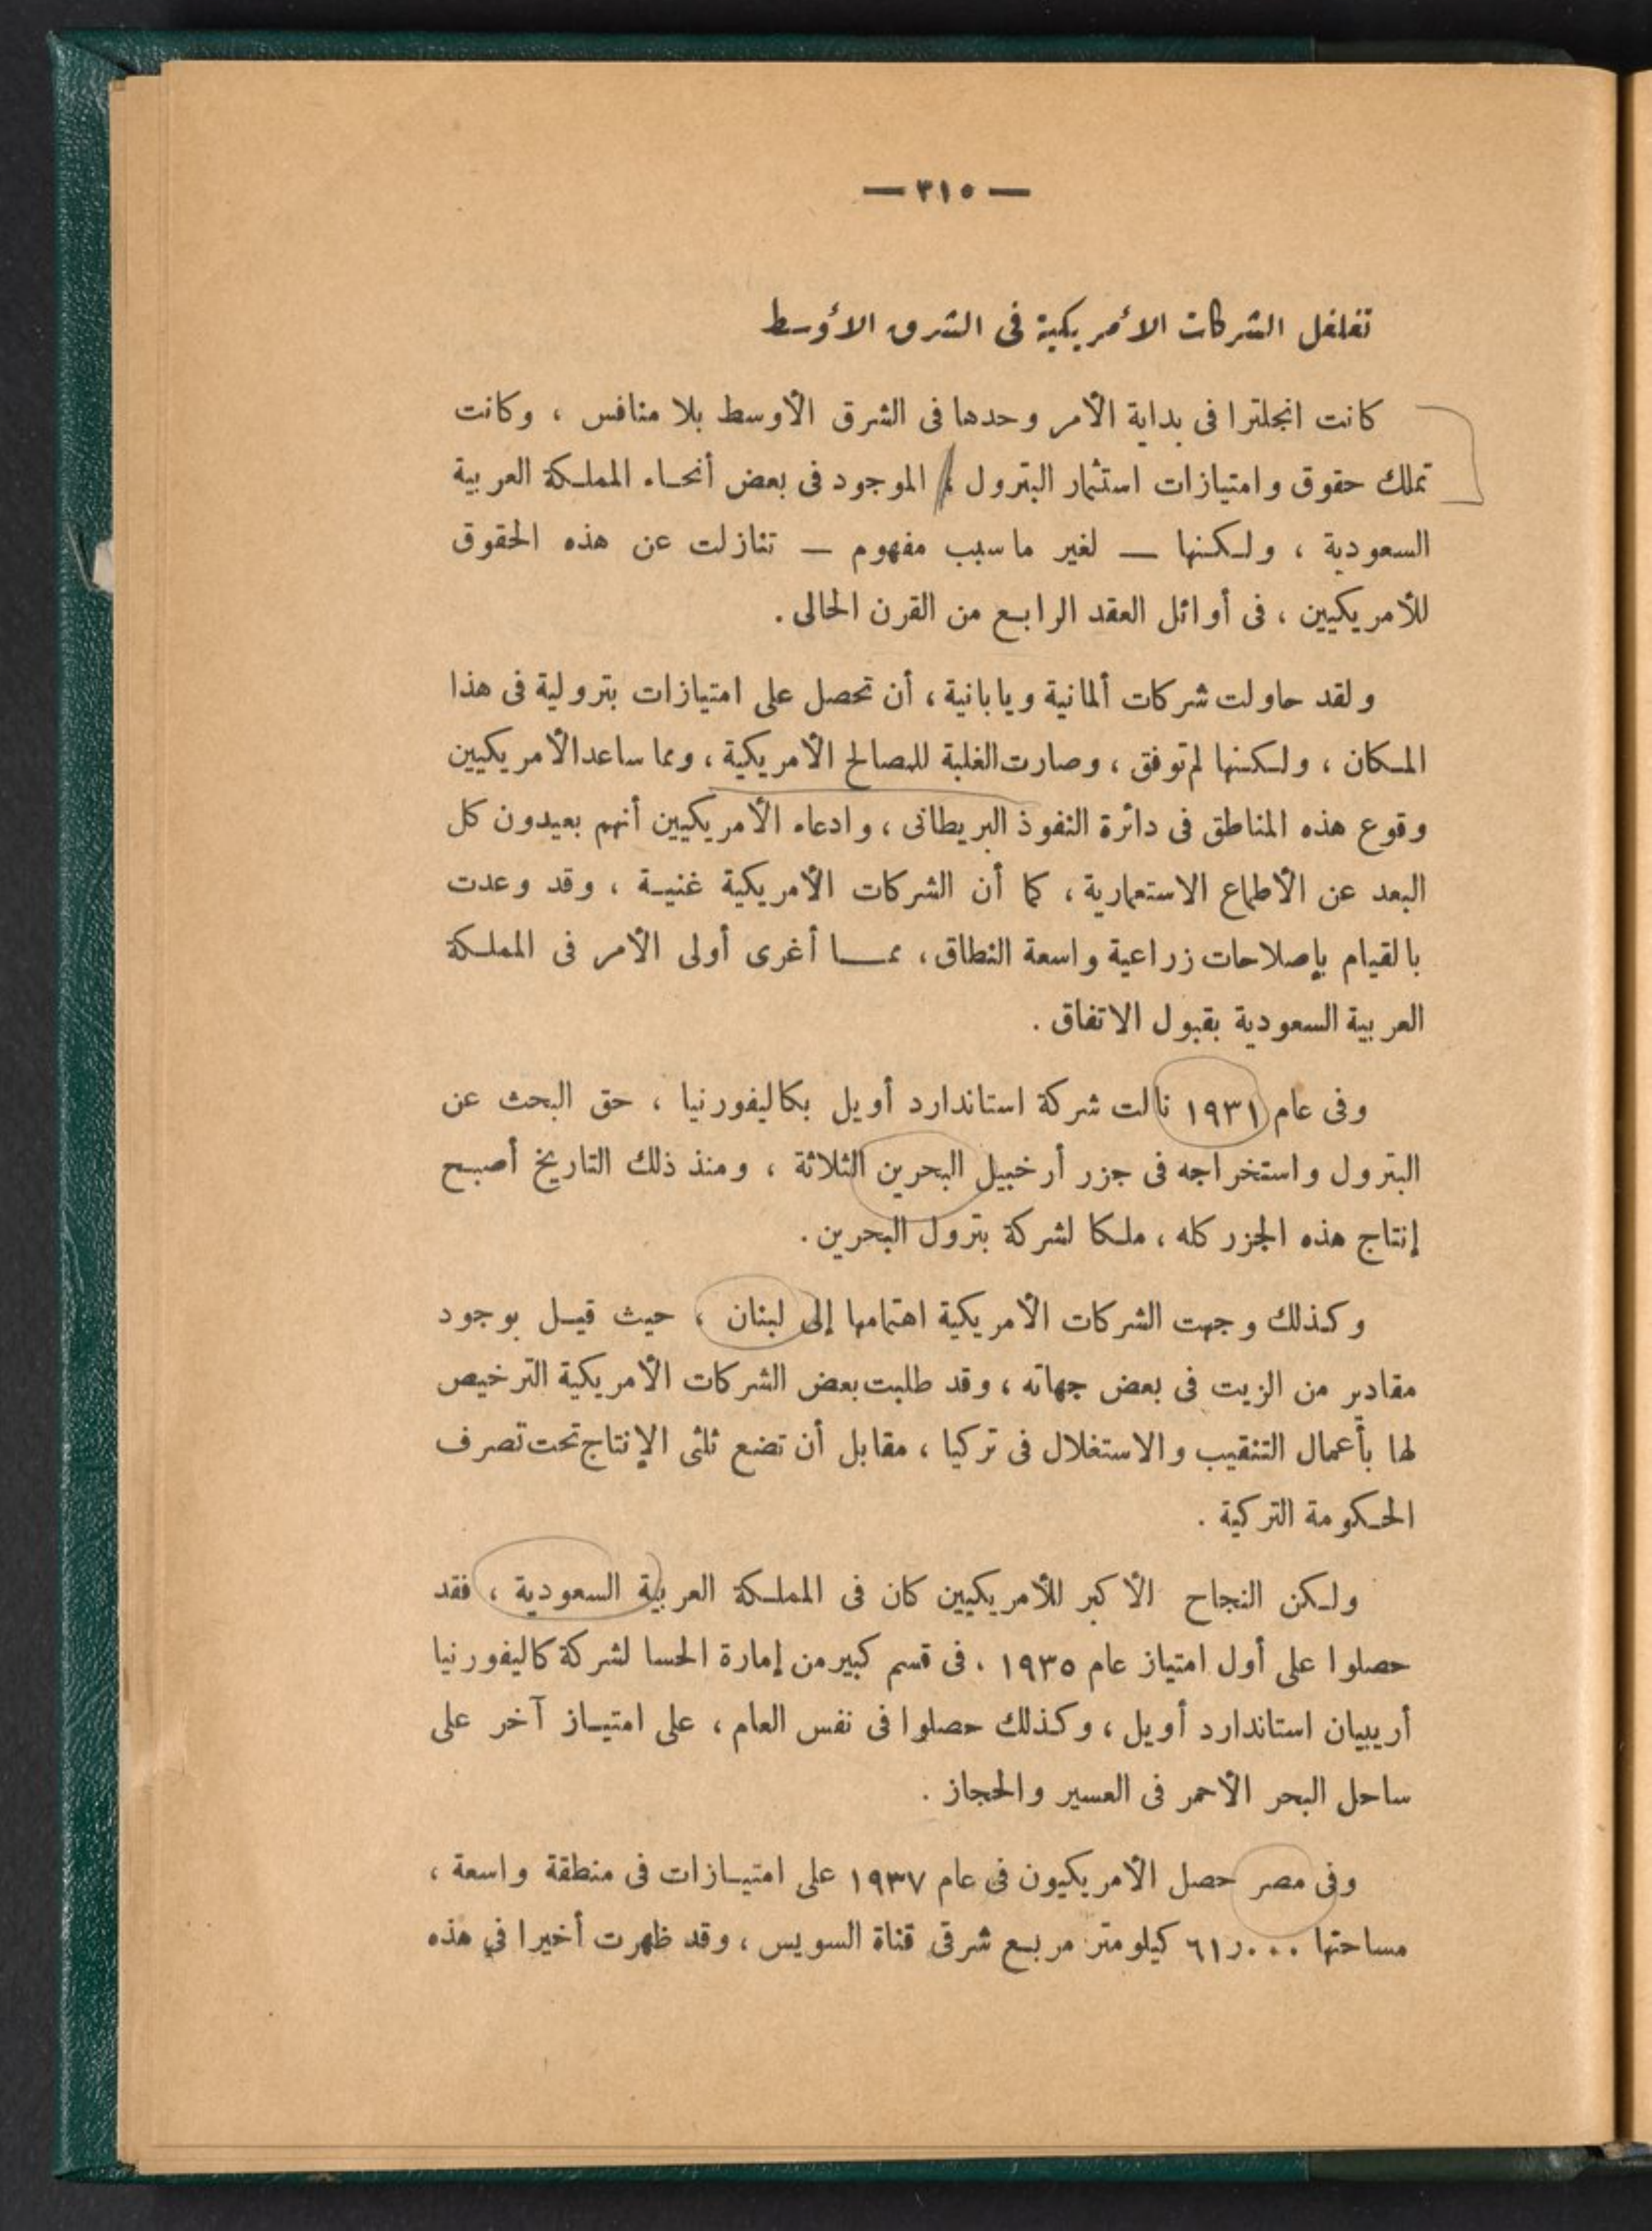 — ٣١٥ —
تغلغل الشركات الأمريكية فى الشرق الأوسط
كانت انجلترا فى بداية الأمر وحدها فى الشرق الأوسط بلا منافس ، وكانت
تملك حقوق وامتيازات استثمار البترول ، الموجود فى بعض أنحاء المملكة العربية
السعودية ، ولكنها — لغير ما سبب مفهوم — تنازلت عن هذه الحقوق
للأمريكيين ، فى أوائل العقد الرابع من القرن الحالى .
ولقد حاولت شركات ألمانية ويابانية ، أن تحصل على امتيازات بترولية فى هذا
المكان ، ولكنها لم توفق ، وصارت الغلبة للمصالح الأمريكية ، ومما ساعد الأمريكيين
وقوع هذه المناطق فى دائرة النفوذ البريطانى ، وادعاء الأمريكيين أنهم بعيدون كل
البعد عن الأطماع الاستعمارية ، كما أن الشركات الأمريكية غنية ، وقد وعدت
بالقيام بإصلاحات زراعية واسعة النطاق ، مما أغرى أولى الأمر فى المملكة
العربية السعودية بقبول الاتفاق .
وفى عام ١٩٣١ نالت شركة استاندارد أويل بكاليفورنيا ، حق البحث عن
البترول واستخراجه فى جزر أرخبيل البحرين الثلاثة ، ومنذ ذلك التاريخ أصبح
إنتاج هذه الجزر كله ، ملكا لشركة بترول البحرين .
وكذلك وجهت الشركات الأمريكية اهتمامها إلى لبنان ، حيث قيل بوجود
مقادير من الزيت فى بعض جهاته ، وقد طلبت بعض الشركات الأمريكية الترخيص
لها بأعمال التنقيب والاستغلال فى تركيا ، مقابل أن تضع ثلثى الإنتاج تحت تصرف
الحكومة التركية .
ولكن النجاح الأكبر للأمريكيين كان فى المملكة العربية السعودية ، فقد
حصلوا على أول امتياز عام ١٩٣٥ ، فى قسم كبير من إمارة الحسا لشركة كاليفورنيا
أريبيان استاندارد أويل ، وكذلك حصلوا فى نفس العام ، على امتياز آخر على
ساحل البحر الأحمر فى العسير والحجاز .
وفى مصر حصل الأمريكيون فى عام ١٩٣٧ على امتيازات فى منطقة واسعة ،
مساحتها ٦١ر٠٠٠ كيلو متر مربع شرقى قناة السويس ، وقد ظهرت أخيرا في هذه